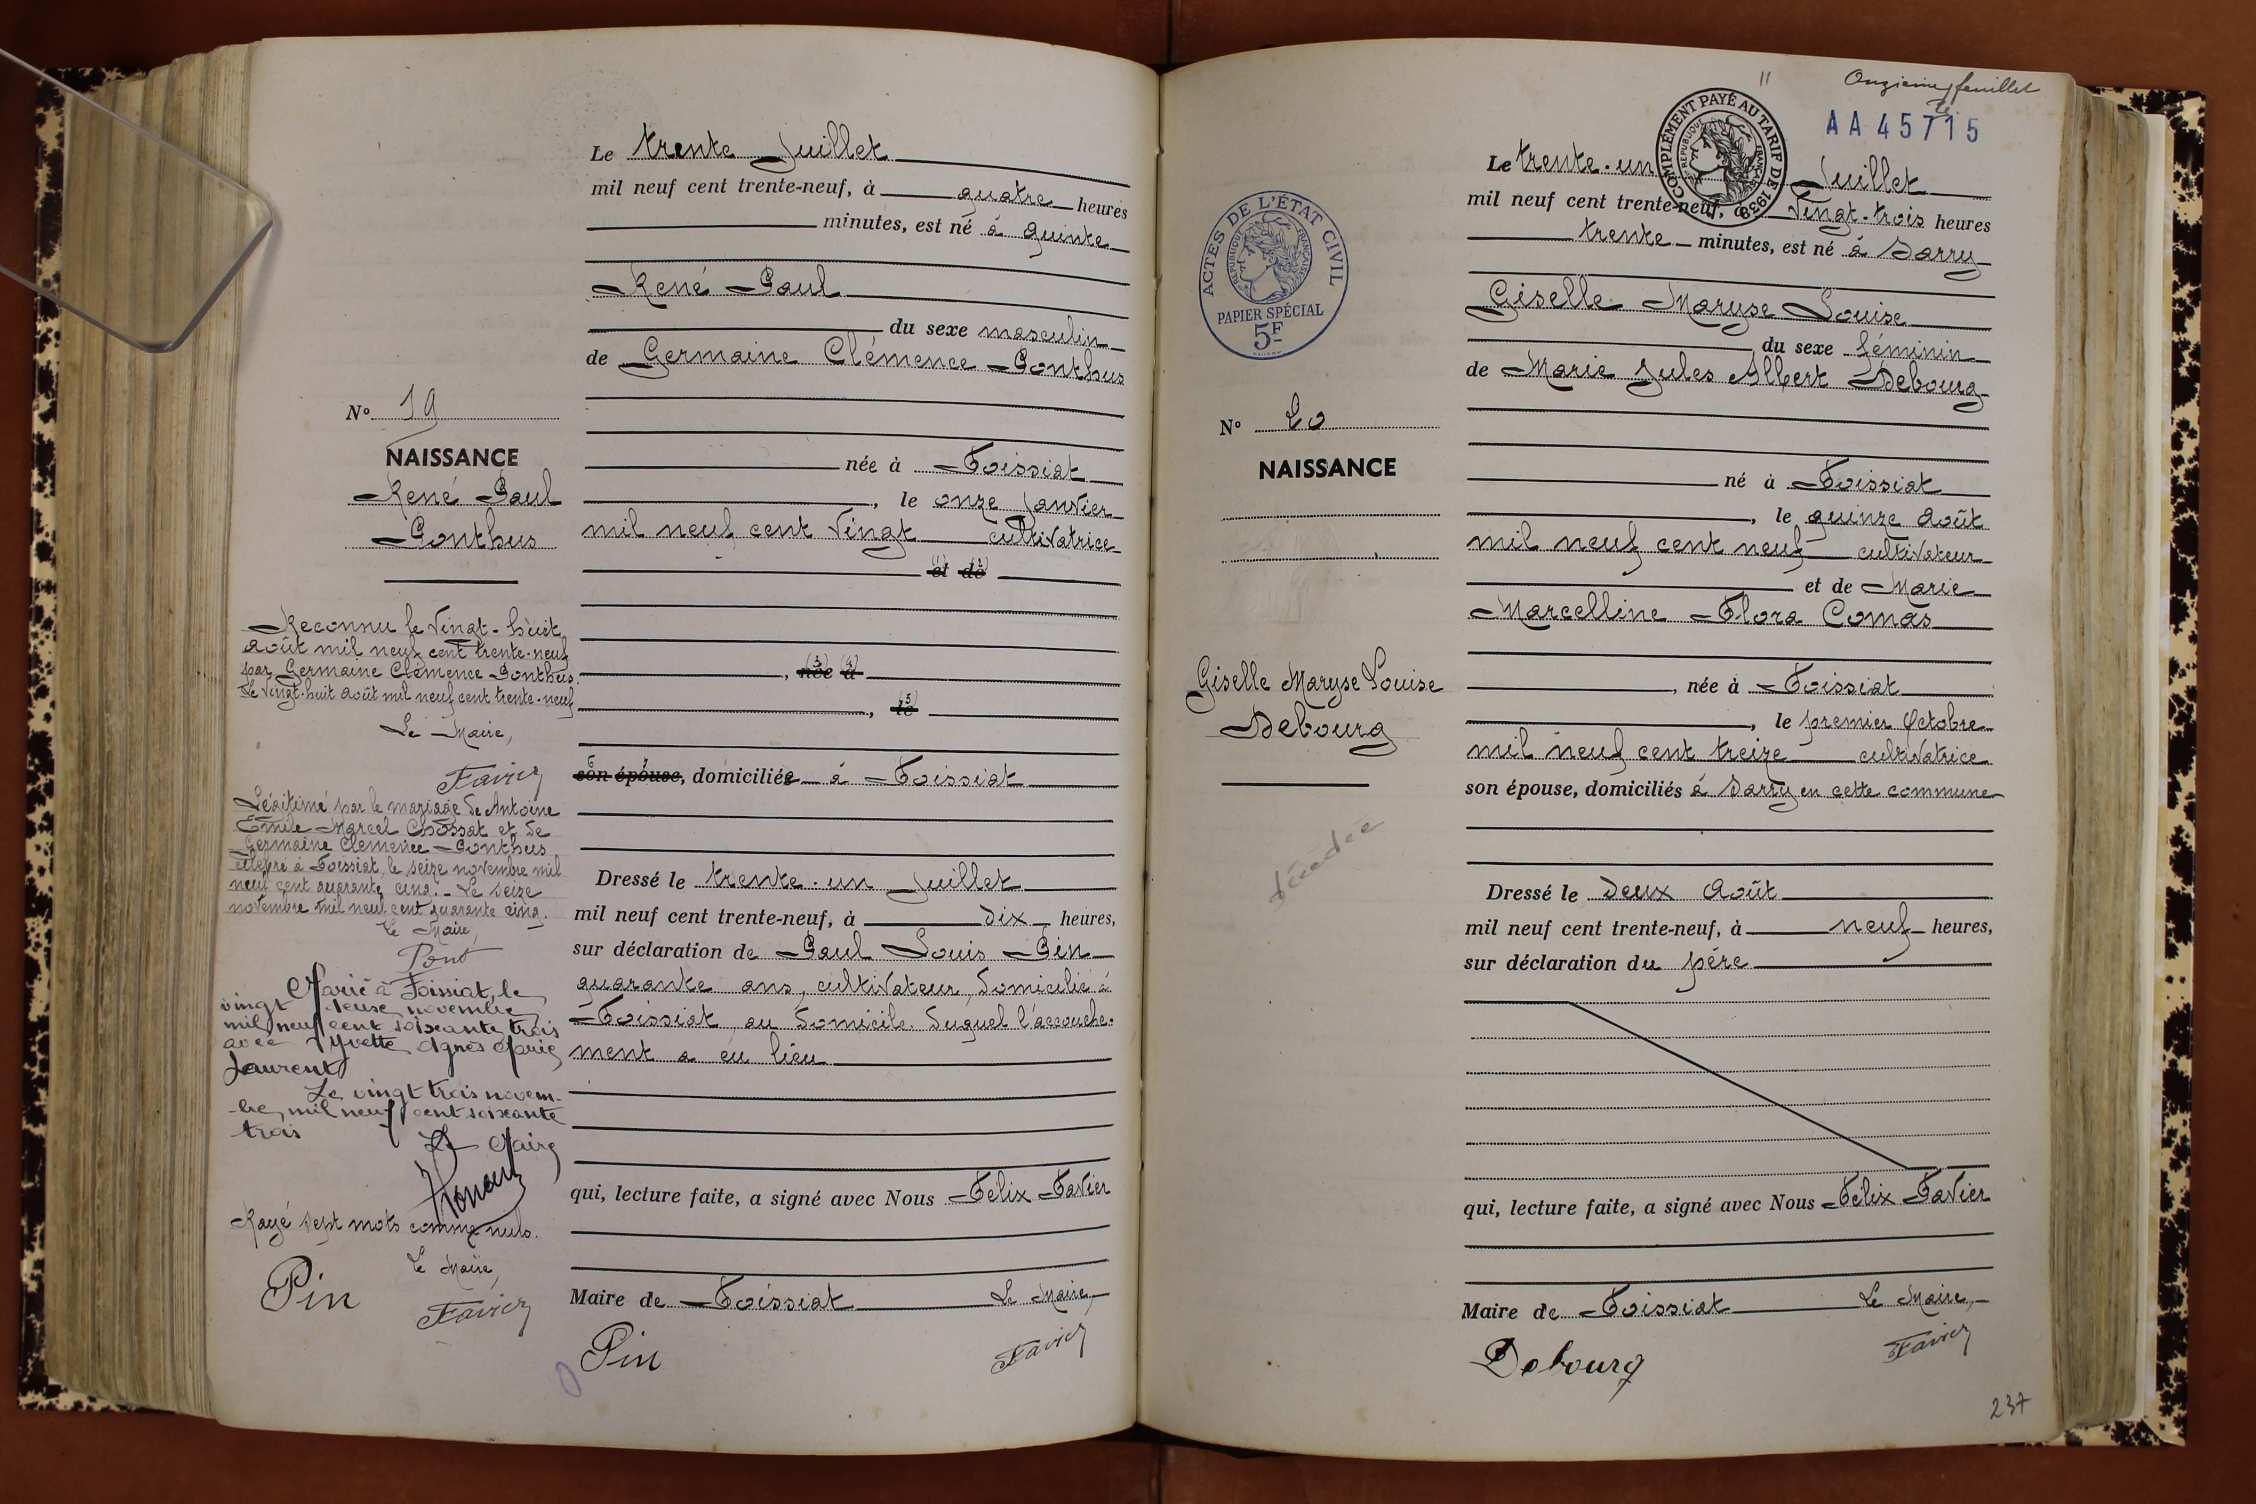 Le trente Juillet
mil neuf cent trente-neuf, à quatre heures
minutes, est né à Quinte
René Paul
du sexe masculin
de Germaine Clémence Ponthus
née à Foissiat
, le onze Janvier
mil neuf cent vingt cultivatrice
(1) (2)
et de
(3) (4)
, née à
(5)
, le
6
son épouse, domiciliée à Foissiat
Dressé le trente-un Juillet
mil neuf cent trente-neuf, à dix heures,
sur déclaration de Paul Louis Pin
quarante ans, cultivateur, domicilié à
Foissiat, au domicile duquel l'accouche-
ment a eu lieu
qui, lecture faite, a signé avec Nous Félix Favier
Maire de Foissiat Le Maire,
Pin Favier
N° 19
NAISSANCE
René Paul
Ponthus
Reconnu le vingt-huit
août mil neuf cent trente-neuf
par Germaine Clémence Ponthus.
Le vingt-huit août mil neuf cent trente-neuf
Le Maire,
Favier
Légitimé par le mariage de Antoine
Emile Marcel Chossat et de
Germaine Clémence Ponthus
célébré à Foissiat, le seize novembre mil
neuf cent quarante cinq. - Le seize
novembre mil neuf cent quarante cinq.
Le Maire,
Pont
Marié à Foissiat, le
vingt deux novembre
mil neuf cent soixante trois
avec Yvette Agnès Marie
Laurent
Le vingt trois novem-
bre mil neuf cent soixante
trois
Le Maire
Rayé sept mots comme nuls.
Le Maire,
Pin Favier
11 Onzième feuillet
AA 45715
COMPLÉMENT PAYÉ AU TARIF DE 1938
RÉPUBLIQUE FRANÇAISE
ACTES DE L'ÉTAT CIVIL
RÉPUBLIQUE FRANÇAISE
PAPIER SPÉCIAL
5F
Le trente-un Juillet
mil neuf cent trente-neuf, à vingt-trois heures
trente minutes, est né à Darry
Giselle Maryse Louise
du sexe féminin
de Marie Jules Albert Debourg
né à Foissiat
, le quinze Août
mil neuf cent neuf cultivateur
et de Marie
Marcelline Flora Comas
, née à Foissiat
, le premier Octobre
mil neuf cent treize cultivatrice
son épouse, domiciliés à Darry en cette commune
Dressé le deux Août
mil neuf cent trente-neuf, à neuf heures,
sur déclaration du père
qui, lecture faite, a signé avec Nous Félix Favier
Maire de Foissiat Le Maire,
Debourg Favier
N° 20
NAISSANCE
Giselle Maryse Louise
Debourg
décédée
237